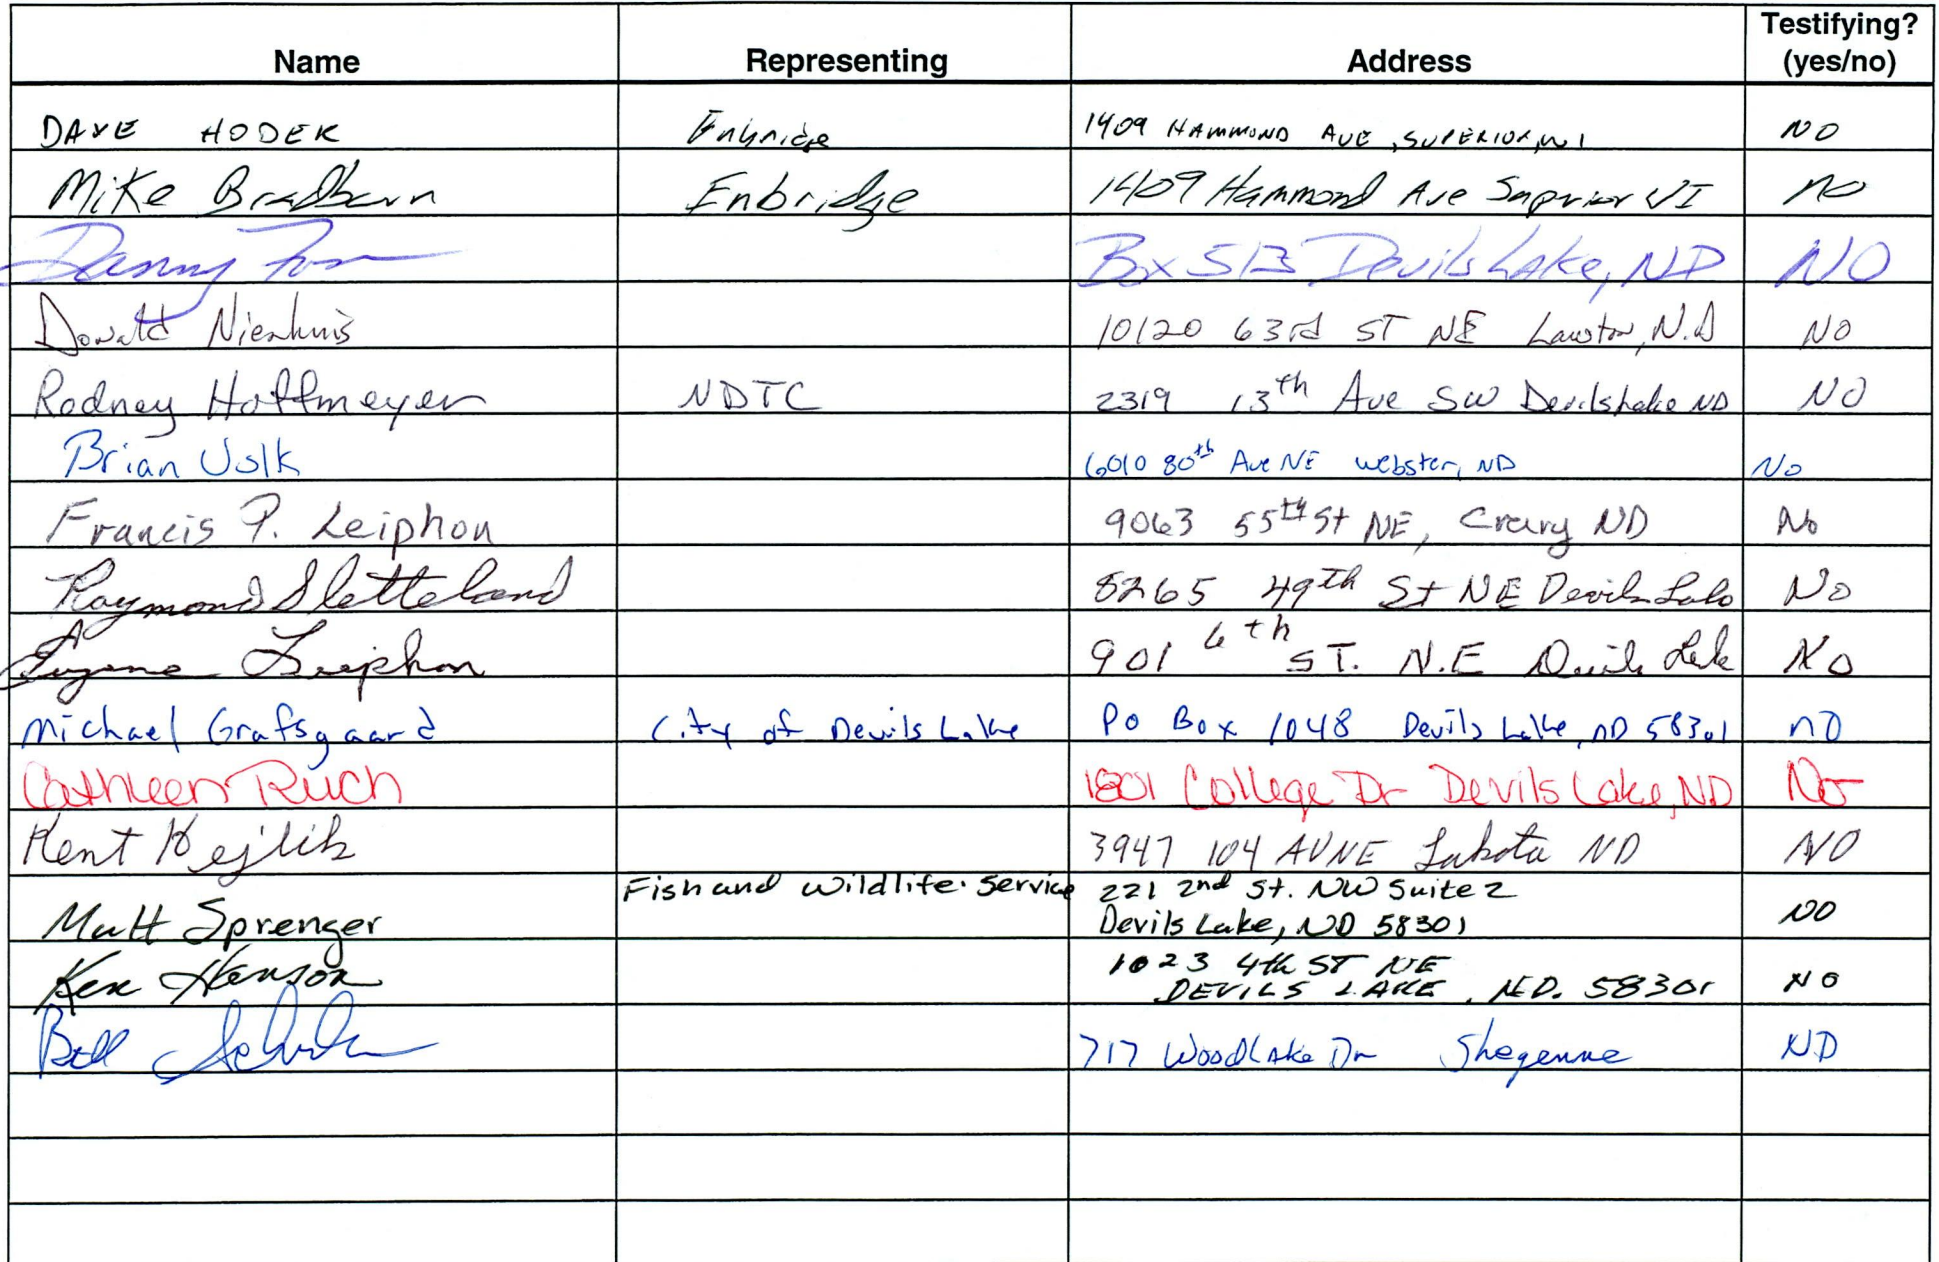 Name Representing Address Testifying? (yes/no)
DAVE HODEK Enbridge 1409 HAMMOND AVE, SUPERIOR, WI NO
Mike Bradburn Enbridge 1409 Hammond Ave Superior WI no
Danny Box 513 Devils Lake, ND NO
Donald Nienhuis 10120 63rd ST NE Lawton, N.D NO
Rodney Hoffmeyer NDTC 2319 13th Ave SW Devils Lake ND NO
Brian 6010 80th Ave NE Webster, ND No
Francis P. Leiphon 9063 55th St NE, Crary ND No
Raymond Sletteland 8265 49th St NE Devils Lake No
Eugene Leiphon 901 6th ST. N.E Devils Lake NO
Michael Grafsgaard City of Devils Lake PO Box 1048 Devils Lake, ND 58301 nO
Cathleen Ruch 1801 College Dr Devils Lake, ND No
Kent Kejlik 3947 104 AVNE Lakota ND NO
Fish and Wildlife Service 221 2nd St. NW Suite 2
Matt Sprenger Devils Lake, ND 58301 NO
Ken Hanson 1023 4th ST NE NO
DEVILS LAKE, ND. 58301
Bill 717 WoodLake Dr Sheyenne NO